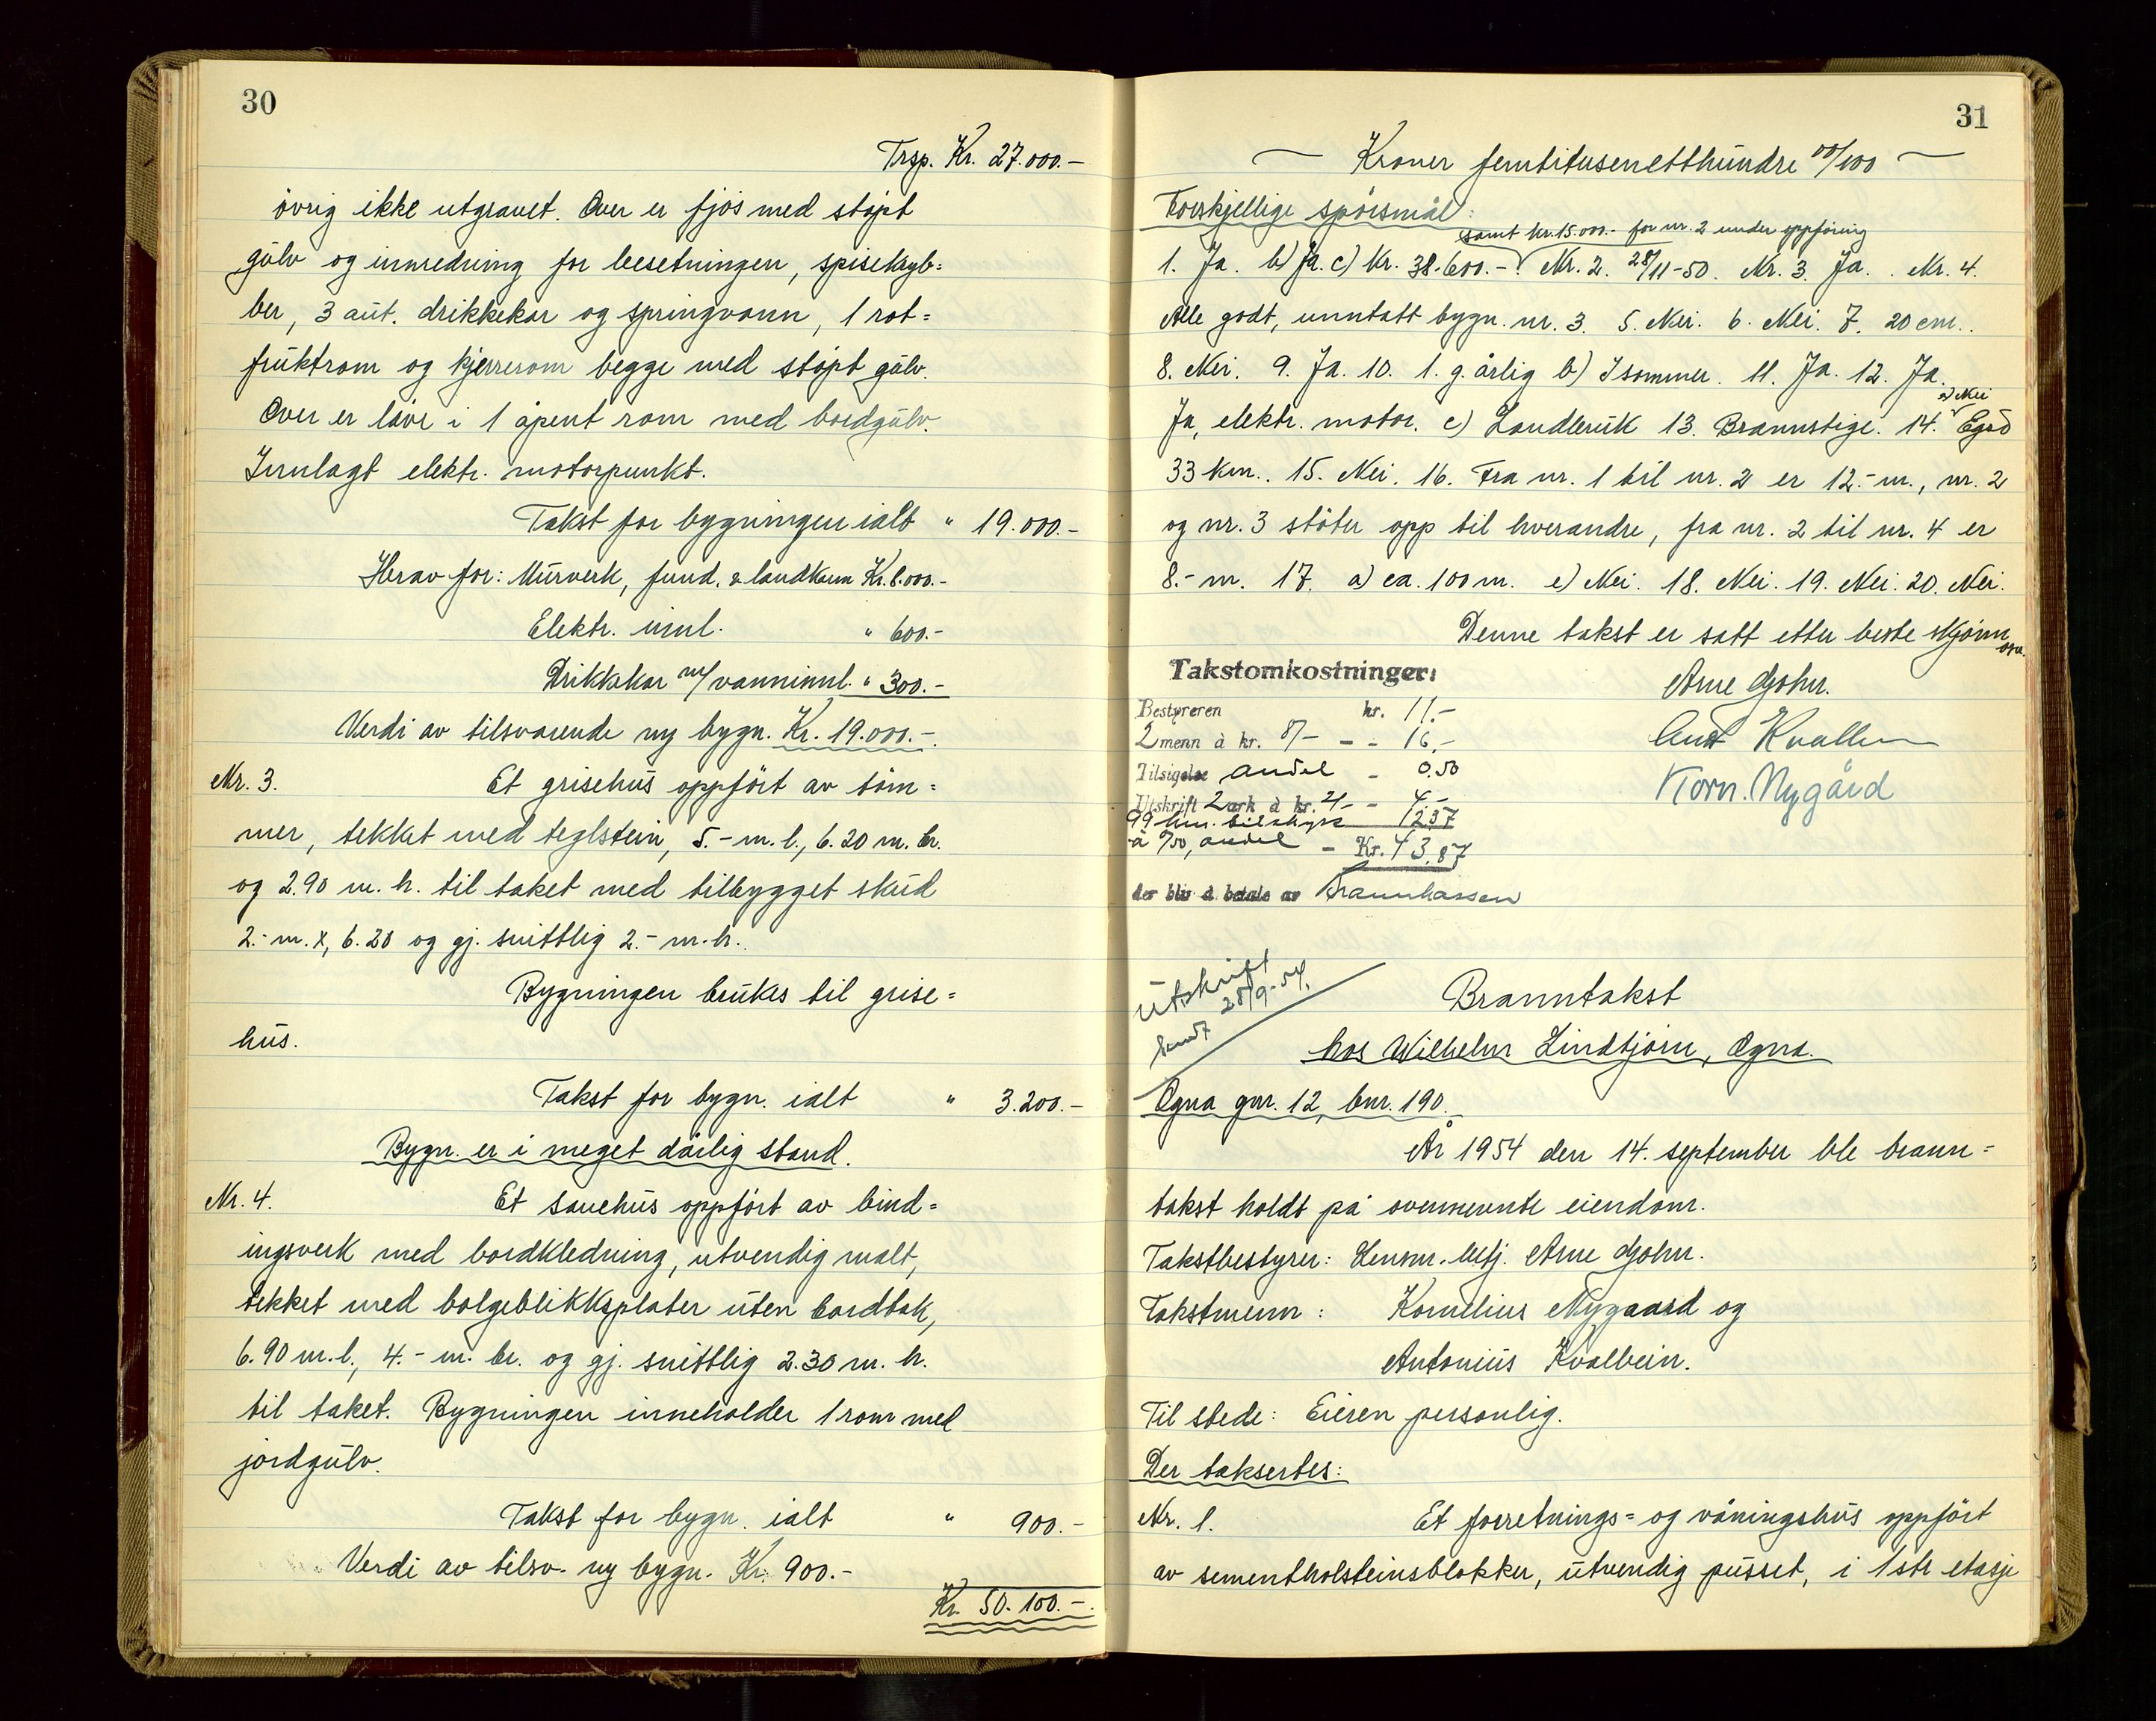 30
Trsp. Kr. 27.000.-
övrig ikke utgravet. Over er fjös med stöpt
gülv og innredning for besetningen, spisekryb=
ber, 3 aüt. drikkekar og springvann, 1 rot=
früktrom og kjerrerom begge med stöpt gülv.
Over er låve i 1 åpent rom med bordgülv.
Innlagt elektr. motorpunkt.
Takst for bygningen ialt " 19.000.-
Herav for: Mürverk, fund. & landkum Kr. 8.000.-
Elektr. innl. " 600.-
Drikkekar m/vanninnl. " 300.-
Verdi av tilsvarende ny bygn. Kr. 19.000.-.
Nr. 3. Et grisehüs oppfört av töm=
mer, tekket med teglstein, 5.- m. l., 6.20 m. br.
og 2.90 m. h. til taket med tilbygget skúd
2.- m. x, 6.20 og gj. snittlig 2.- m. h..
Bygningen brükes til grise=
hüs.
Takst for bygn. ialt " 3.200.-
Bygn. er i meget dårlig stand.
Nr. 4. Et sauehüs oppfört av bind=
ingsverk med bordkledning, utvendig malt,
tekket med bølgeblikksplater üten bordtak,
6.90 m. l., 4.- m. br. og gj. snittlig 2.30 m. h.
til taket. Bygningen inneholder 1 rom med
jordgülv.
Takst for bygn. ialt " 900.-
Verdi av tilsv. ny bygn. Kr. 900.-
Kr. 50.100.-.
31
Kroner femtitusenetthündre 00/100
Forskjellige spörsmål:
samt kr. 15.000.- for nr. 2 under oppföring
1. Ja. b) Ja. c) Kr. 38.600.-. Nr. 2. 28/11-50. Nr. 3. Ja. . Nr. 4.
Alle godt, unntatt bygn. nr. 3. 5. Nei. 6. Nei. 7. 20 cm..
8. Nei. 9. Ja. 10. 1. g. årlig b) I sommer. 11. Ja. 12. Ja.
e) Nei
Ja, elektr. motor. c) Landbrük 13. Brannstige. 14. Egrö
33 km.. 15. Nei. 16. Fra nr. 1 til nr. 2 er 12.- m., nr. 2
og nr. 3 stöter opp til hverandre, fra nr. 2 til nr. 4 er
8.- m. 17. a) ca. 100 m. e) Nei. 18. Nei. 19. Nei. 20. Nei.
Denne takst er satt etter beste skjönn
osv.
Takstomkostninger:
Bestyreren kr. 11.-
2 menn à kr. 8/- - - 16.-
Tilsigelse andel - 0.50
Utskrift 2 ark à kr. 2/- - 4.-
99 km. bilskyss 12.37
à 0/50, andel - Kr. 43.87
der blir å betale av Brannkassen
Arne Gjohn.
Ant Kvalbein
Korn. Nygård
Utskrift
sendt 28/9-54.
Branntakst
hos Wilhelm Lindtjörn, Ogna.
Ogna gnr. 12, bnr. 190.
År 1954 den 14. september ble brann=
takst holdt på ovennevnte eiendom.
Takstbestyrer: Lensm. betj. Arne Gjohn.
Takstmenn: Kornelius Nygaard og
Antoniüs Kvalbein.
Til stede: Eieren personlig.
Der taksertes:
Nr. 1. Et forretnings= og våningshüs oppfört
av sementholsteinsblokker, ütvendig püsset, i 1ste etasje